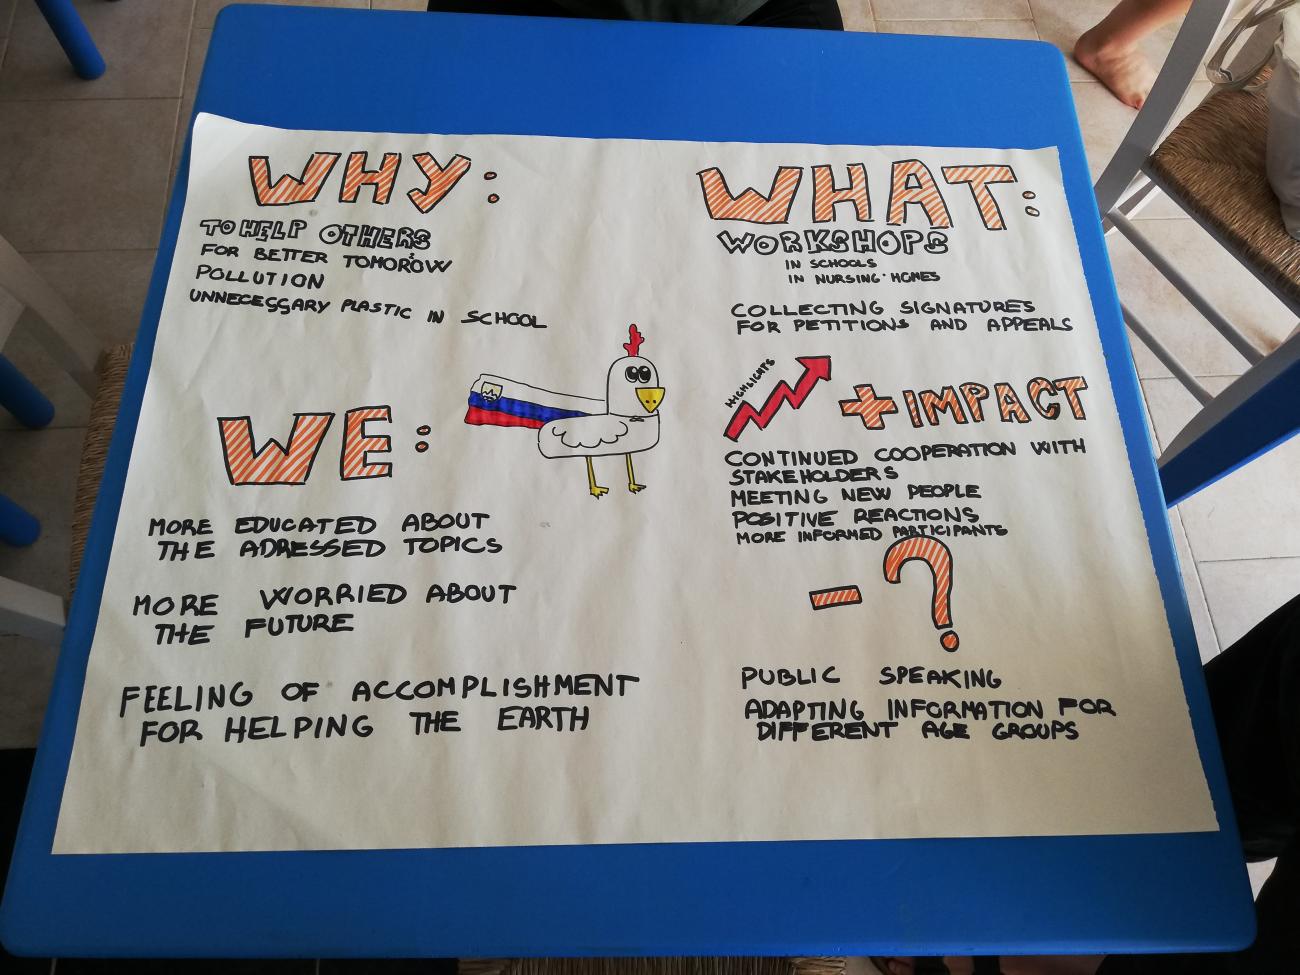 WHY:
TO HELP OTHERS
FOR BETTER TOMORROW
POLLUTION
UNNECESSARY PLASTIC IN SCHOOL
WE:
MORE EDUCATED ABOUT
THE ADRESSED TOPICS
MORE WORRIED ABOUT
THE FUTURE
FEELING OF ACCOMPLISHMENT
FOR HELPING THE EARTH
WHAT:
WORKSHOPS
IN SCHOOLS
IN NURSING HOMES
COLLECTING SIGNATURES
FOR PETITIONS AND APPEALS
HIGHLIGHTS
+IMPACT
CONTINUED COOPERATION WITH
STAKEHOLDERS
MEETING NEW PEOPLE
POSITIVE REACTIONS
MORE INFORMED PARTICIPANTS
- ?
PUBLIC SPEAKING
ADAPTING INFORMATION FOR
DIFFERENT AGE GROUPS